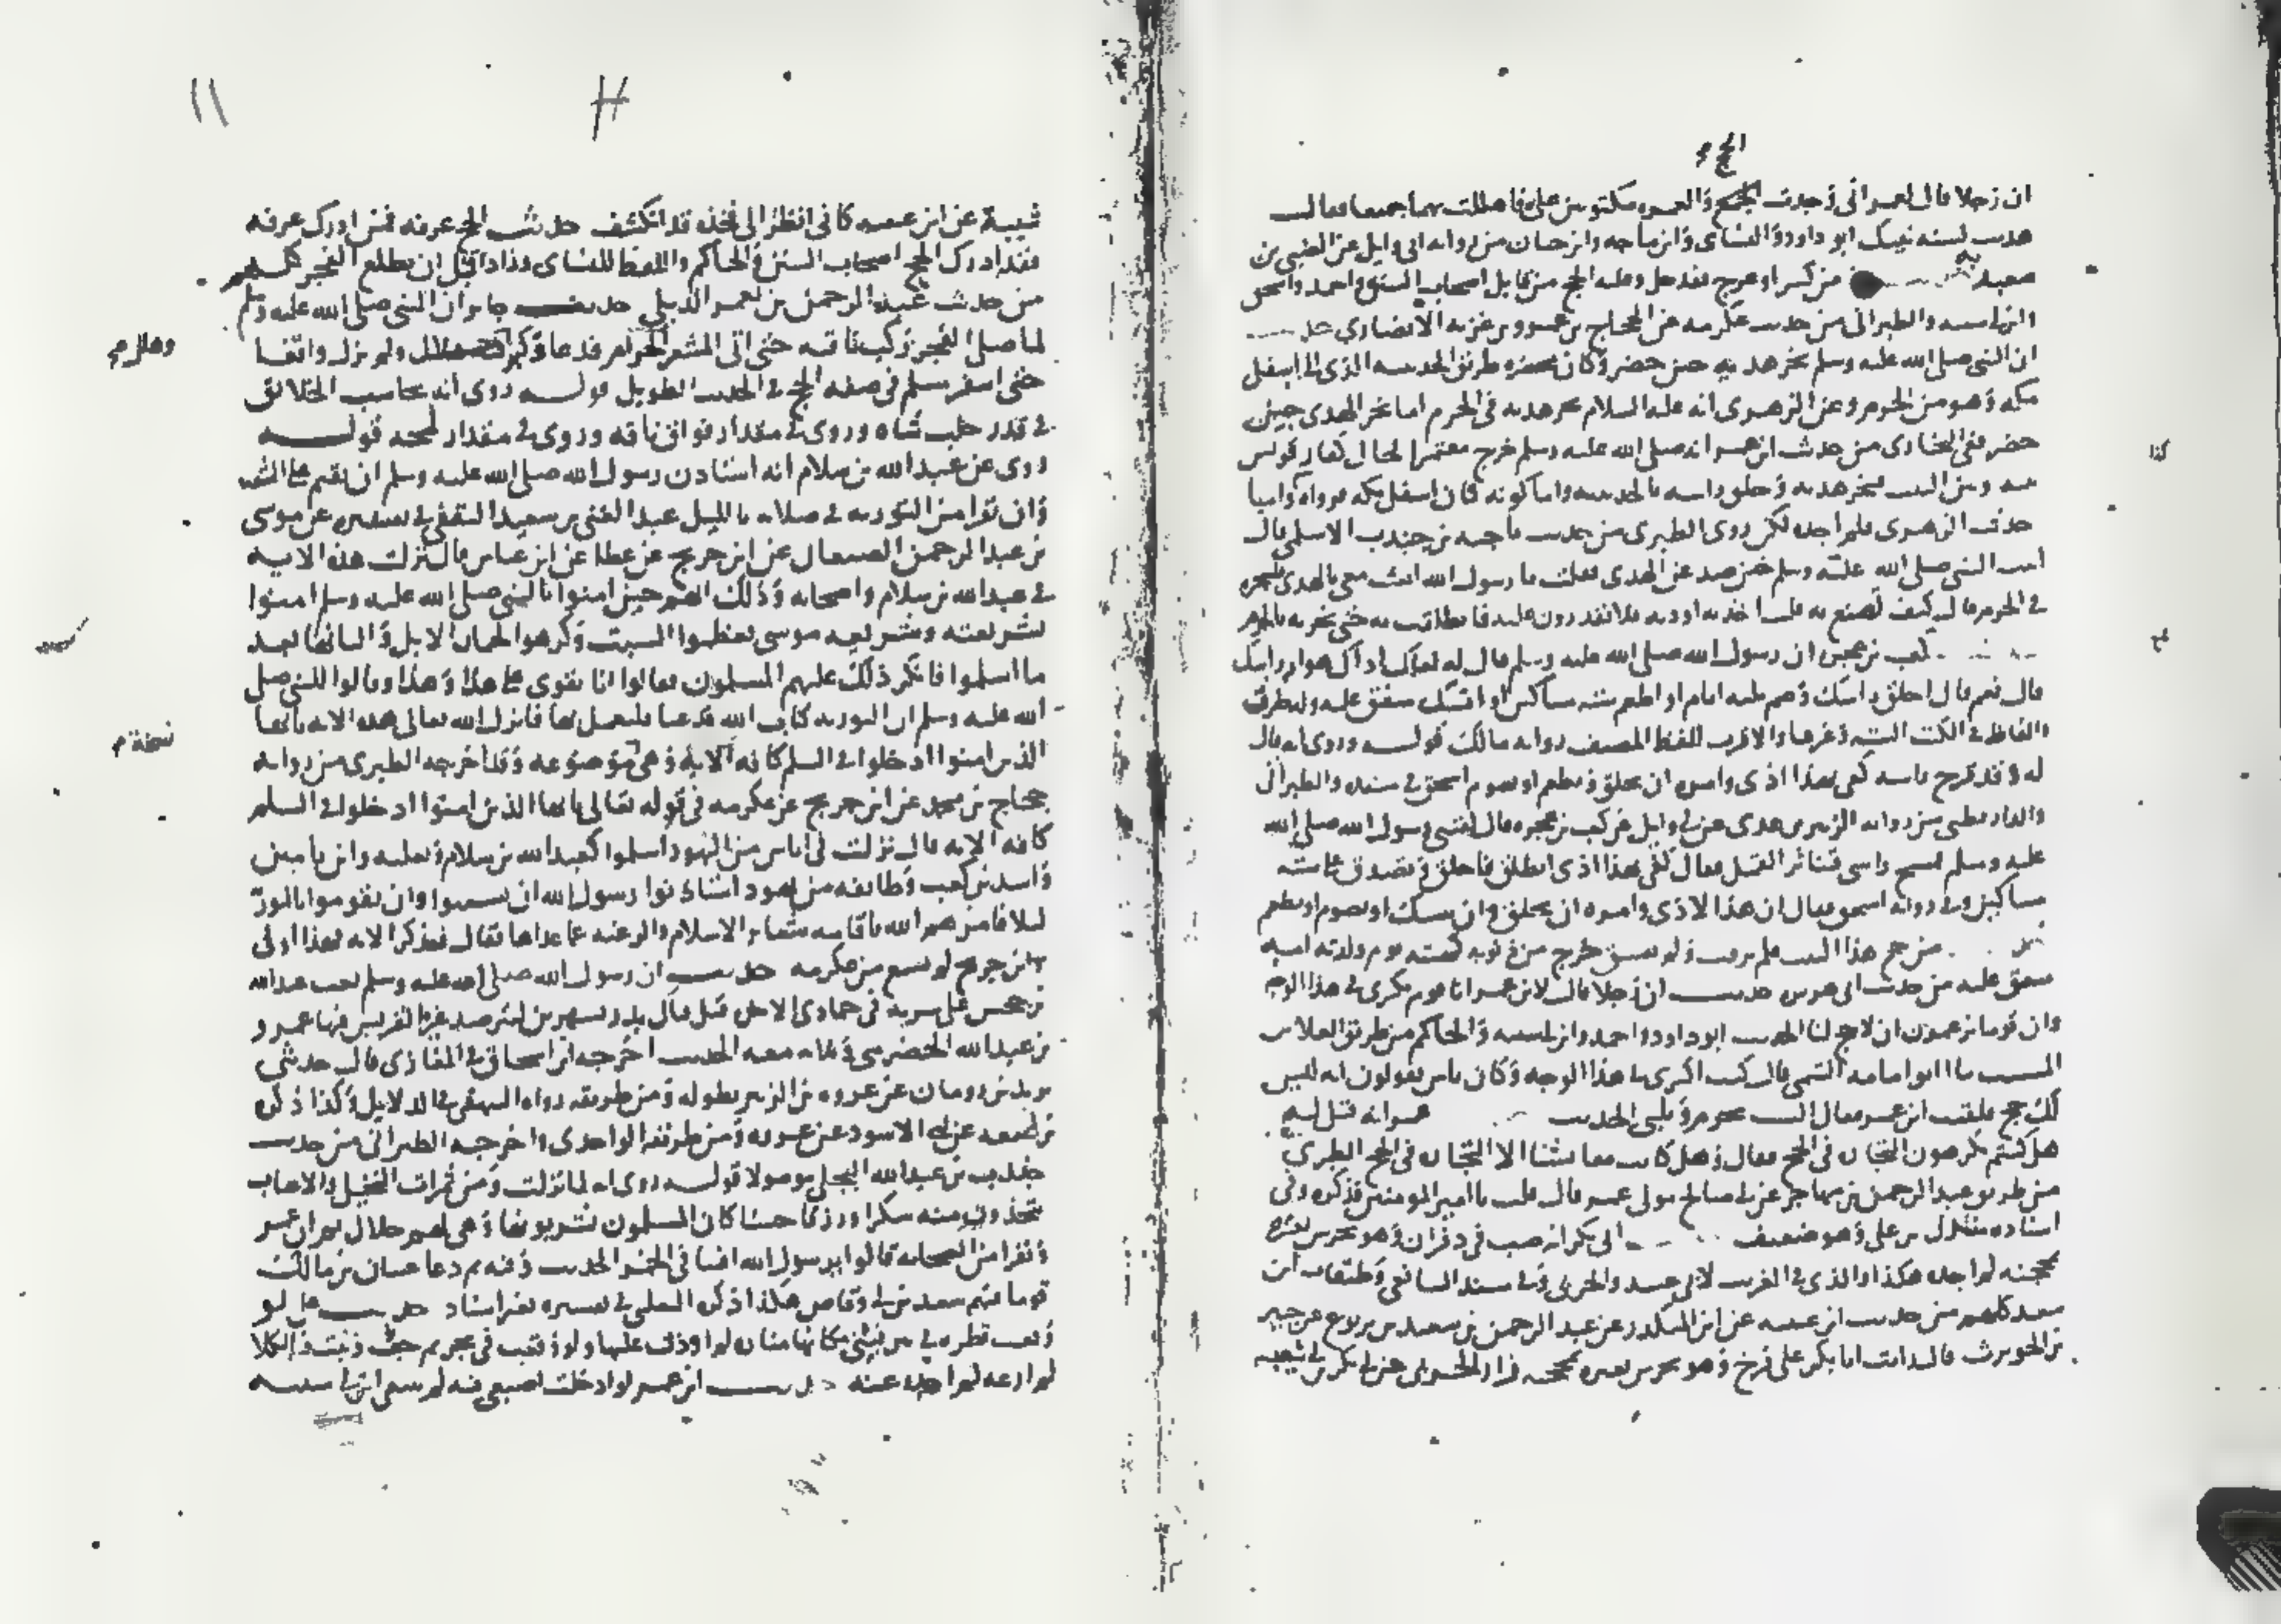 الحج
ان رجلا قال لعمر اني وجدت الحج والعمرة مكتوبين علي فاهللت بهما جميعا فقال
هديت لسنة نبيك ابو داود والنساي وابن ماجه وابن حبان من رواية ابي وايل عن الصبي بن
معبد من كسر او عرج فقد حل وعليه الحج من قابل اصحاب السنن واحمد واسحق
وابن ابي شيبه والطبراني من حديث عكرمه عن الحجاج بن عمرو بن غزيه الانصاري
ان النبي صلى الله عليه وسلم نحر هديه حين حضر وكان محصره طرف الحديبيه الذي الى اسفل
مكه وهو من الحرم وعن الزهري انه عليه السلام نحر هديه في الحرم اما نحر الهدي حين
حضر ففي البخاري من حديث ابن عمر انه صلى الله عليه وسلم خرج معتمرا فحال كفار قريش
بينه وبين البيت فنحر هديه وحلق راسه بالحديبيه واما كونه كان اسفل مكه فرواه
حديث الزهري فلم اجده لكن روى الطبري من حديث ناجيه بن جندب الاسلمي قال
اتيت النبي صلى الله عليه وسلم حين صد عن الهدي فقلت يا رسول الله ابعث معي بالهدي فلننحره
في الحرم قال كيف تصنع به قلت اخذ به اوديه فلا يقدرون عليه فانطلقت به حتى نحرته بالحرم
كعب بن عجره ان رسول الله صلى الله عليه وسلم قال له لعلك اذاك هوام راسك
قال نعم قال احلق راسك وصم ثلثه ايام او اطعم سته مساكين او انسك متفق عليه وله طرق
والفاظ في الكتب السته وغيرها والاقرب للفظ المصنف روايه مالك قوله وروي انه قال
له وقد قرح راسه كفى بهذا اذى وامره ان يحلق ويطعم او يصوم اسحق في مسنده والطبراني
والدارقطني من روايه الزبير بن عدي عن ابي وايل عن كعب بن عجره قال لقيني رسول الله صلى الله
عليه وسلم راسي فتناثر القمل فقال كفى بهذا اذى انطلق فاحلق وتصدق على سته
مساكين وفي روايه اسحق فقال ان هذا لاذى وامره ان يحلق وان ينسك او يصوم او يطعم
من حج هذا البيت فلم يرفث ولم يفسق خرج من ذنوبه كهيئته يوم ولدته امه
متفق عليه من حديث ابي هريره حديث ان رجلا قال لابن عمر انا قوم نكري في هذا الوجه
وان قوما يزعمون ان لا حج لنا الحديث ابو داود واحمد وابن ابي شيبه والحاكم من طريق العلا بن
المسيب نا ابو امامه التيمي قال كنت اكري في هذا الوجه وكان ناس يقولون انه ليس
لك حج فلقيت ابن عمر فقال اليس تحرم وتلبي الحديث عمر انه قيل له
هل كنتم تكرهون التجاره في الحج فقال وهل كانت معايشنا الا التجاره في الحج الطبري
من طريق عبد الرحمن بن مهاجر عن ابي صالح مولى عمر قال قلت يا امير المومنين فذكره وفي
اسناده مندل بن علي وهو ضعيف ابي بكر انه صب في دقران وهو يخرش بعيره
بمحجنه لم اجده هكذا والذي في الغريب لابي عبيد والحربي وفي مسند الشافعي وطبقات ابن
سعد كلهم من حديث ابن عيينه عن ابن المنكدر عن عبد الرحمن بن سعيد بن يربوع عن جبير
بن الحويرث قال رايت ابا بكر على قزح وهو يخرش بعيره بمحجنه زاد الحربي عن ابي بكر بن ابي شيبه
كذا
١١
شيبة عن ابن عيينه كاني انظر الى فخذه قد انكشف حديث الحج عرفه فمن ادرك عرفه
فقد ادرك الحج اصحاب السنن والحاكم واللفظ للنساي وزاد قبل ان يطلع الفجر كلهم
من حديث عبد الرحمن بن يعمر الديلي حديث جابر ان النبي صلى الله عليه وسلم
لما صلى الفجر ركب ناقته حتى اتى المشعر الحرام فدعا وكبر وهلل ولم يزل واقفا
حتى اسفر مسلم في صفه الحج في الحديث الطويل قوله روي انه يحاسب الخلائق
في قدر حلب شاه وروي في مقدار فواق ناقه وروي في مقدار لمحه قوله
روي عن عبد الله بن سلام انه استاذن رسول الله صلى الله عليه وسلم ان يقيم على السبت
وان يقرا من التوريه في صلاته بالليل عبد الغني بن سعيد الثقفي في تفسيره عن موسى
بن عبد الرحمن الصنعاني عن ابن جريج عن عطا عن ابن عباس قال نزلت هذه الايه
في عبد الله بن سلام واصحابه وذلك انهم حين امنوا بالنبي صلى الله عليه وسلم امنوا
بشريعته وشريعه موسى فعظموا السبت وكرهوا لحمان الابل والبانها بعد
ما اسلموا فانكر ذلك عليهم المسلمون فقالوا انا نقوى على هذا وهذا وقالوا للنبي صلى
الله عليه وسلم ان التوريه كتاب الله فدعنا فلنعمل بها فانزل الله تعالى هذه الايه يايها
الذين امنوا ادخلوا في السلم كافه الاية وهي موضوعه وقد اخرجه الطبري من روايه
حجاج بن محمد عن ابن جريج عن عكرمه في قوله تعالى يايها الذين امنوا ادخلوا في السلم
كافه الايه قال نزلت في ناس من اليهود اسلموا كعبد الله بن سلام وثعلبه وابن يامين
واسد بن كعب وطائفه من يهود استاذنوا رسول الله ان يسبتوا وان يقوموا بالتوراه
ليلا فامرهم الله باقامه شعائر الاسلام والرغبه عما عداها فقال فذكر الايه
ابن جريج لم يسمع من عكرمه حديث ان رسول الله صلى الله عليه وسلم بعث عبد الله
بن جحش على سريه في جمادى الاخره قبل قتال بدر بشهرين ليترصد عيرا لقريش فيها عمرو
بن عبد الله الحضرمي وثلاثه معه الحديث اخرجه ابن اسحاق في المغازي قال حدثني
يزيد بن رومان عن عروه بن الزبير بطوله ومن طريقه رواه البيهقي في الدلايل وكذا ذكره
بن لهيعه عن ابي الاسود عن عروه ومن طريقه الواحدي واخرجه الطبراني من حديث
جندب بن عبد الله البجلي موصولا قوله روي انه لما نزلت ومن ثمرات النخيل والاعناب
تتخذون منه سكرا ورزقا حسنا كان المسلمون يشربونها وهي لهم حلال ثم ان عمر
ونفرا من الصحابه قالوا يا رسول الله افتنا في الخمر الحديث وفيه ثم دعا عتبان بن مالك
قوما فيهم سعد بن ابي وقاص هكذا ذكره الثعلبي في تفسيره بغير اسناد حديث علي لو
وقعت قطره في بير فبنيت مكانها مناره لم اوذن عليها ولو وقعت في بحر ثم جف ونبت فيه الكلا
لم ارعه لم اجده عنه حديث ابن عمر لو ادخلت اصبعي فيه لم ابن ابي شيبه
وهلل صح
نسخة م